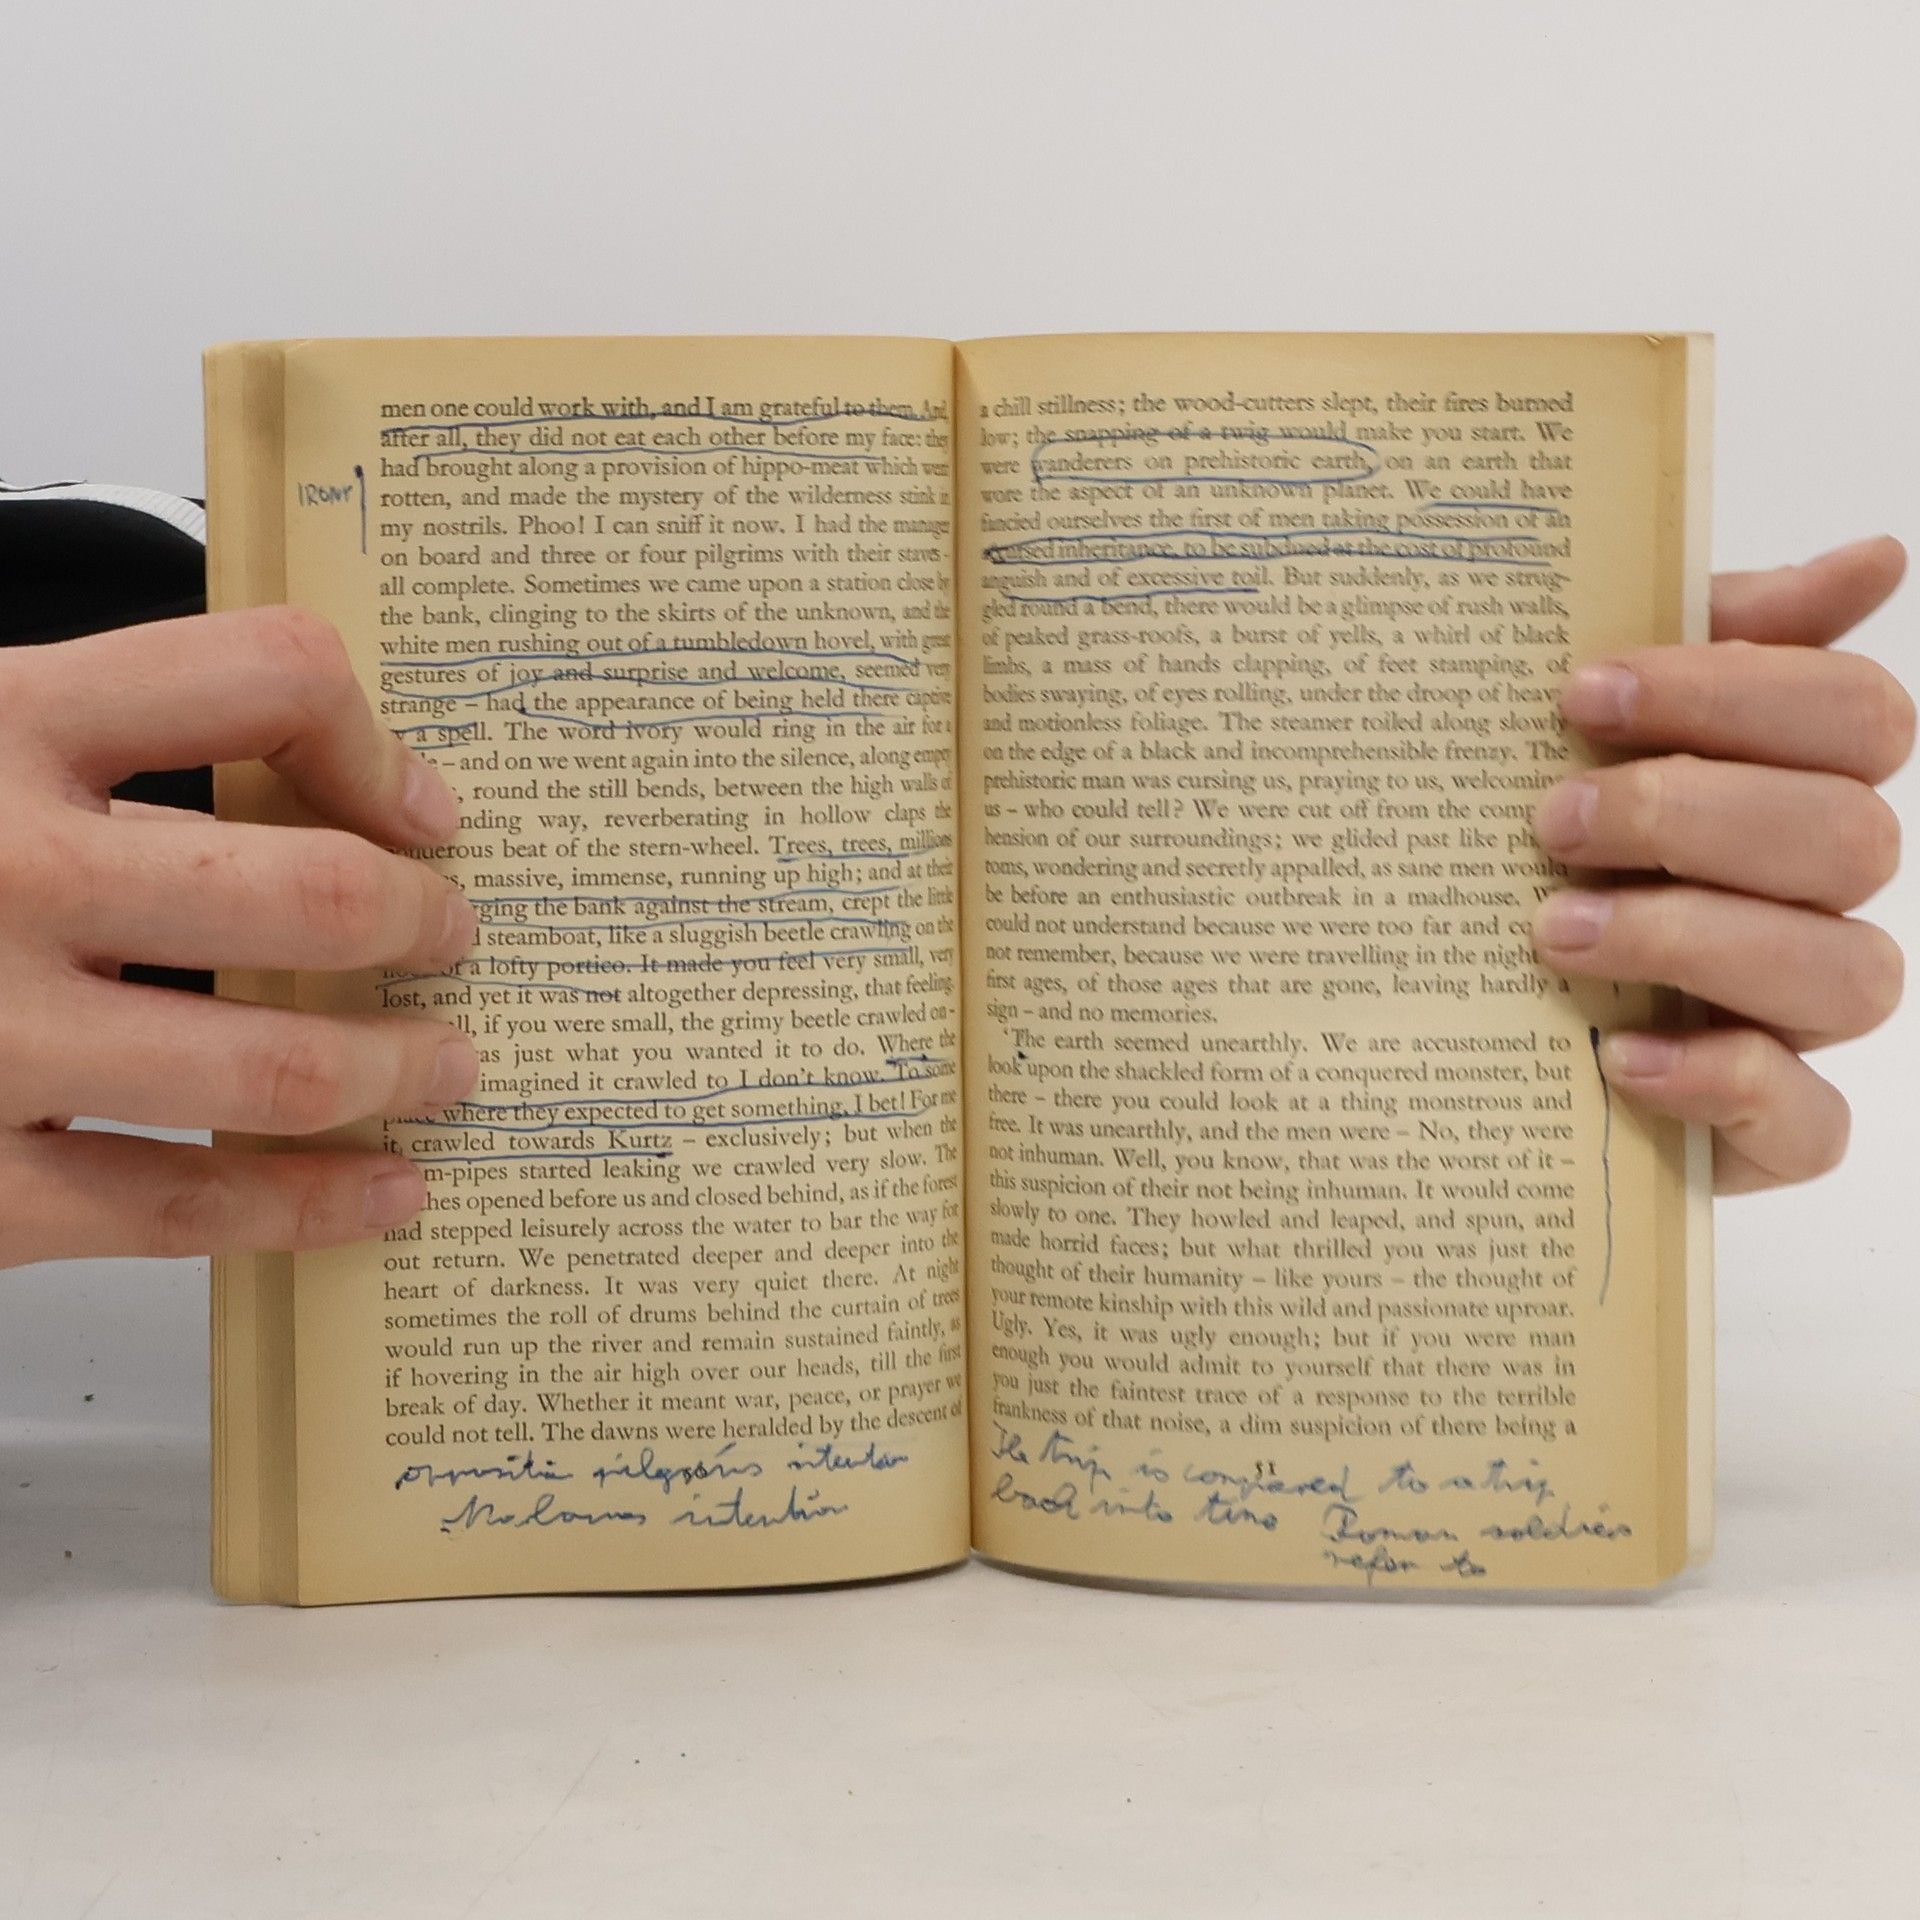 men one could work with, and I am grateful to them. And,
after all, they did not eat each other before my face: they
had brought along a provision of hippo-meat which went
IRONY
rotten, and made the mystery of the wilderness stink in
my nostrils. Phoo! I can sniff it now. I had the manager
on board and three or four pilgrims with their staves -
all complete. Sometimes we came upon a station close by
the bank, clinging to the skirts of the unknown, and the
white men rushing out of a tumbledown hovel, with great
gestures of joy and surprise and welcome, seemed very
strange – had the appearance of being held there captive
a spell. The word ivory would ring in the air for a
– and on we went again into the silence, along empty
, round the still bends, between the high walls of
nding way, reverberating in hollow claps the
ponderous beat of the stern-wheel. Trees, trees, millions
s, massive, immense, running up high; and at their
ging the bank against the stream, crept the little
d steamboat, like a sluggish beetle crawling on the
of a lofty portico. It made you feel very small, very
lost, and yet it was not altogether depressing, that feeling.
ll, if you were small, the grimy beetle crawled on-
as just what you wanted it to do. Where the
imagined it crawled to I don't know. To some
place where they expected to get something, I bet! For me
it crawled towards Kurtz – exclusively; but when the
m-pipes started leaking we crawled very slow. The
hes opened before us and closed behind, as if the forest
had stepped leisurely across the water to bar the way for
out return. We penetrated deeper and deeper into the
heart of darkness. It was very quiet there. At night
sometimes the roll of drums behind the curtain of trees
would run up the river and remain sustained faintly, as
if hovering in the air high over our heads, till the first
break of day. Whether it meant war, peace, or prayer we
could not tell. The dawns were heralded by the descent of
pilgrims intention
intention
a chill stillness; the wood-cutters slept, their fires burned
low; the snapping of a twig would make you start. We
were wanderers on prehistoric earth, on an earth that
wore the aspect of an unknown planet. We could have
fancied ourselves the first of men taking possession of an
accursed inheritance, to be subdued at the cost of profound
anguish and of excessive toil. But suddenly, as we strug-
gled round a bend, there would be a glimpse of rush walls,
of peaked grass-roofs, a burst of yells, a whirl of black
limbs, a mass of hands clapping, of feet stamping, of
bodies swaying, of eyes rolling, under the droop of heavy
and motionless foliage. The steamer toiled along slowly
on the edge of a black and incomprehensible frenzy. The
prehistoric man was cursing us, praying to us, welcoming
us – who could tell? We were cut off from the comp
hension of our surroundings; we glided past like ph
toms, wondering and secretly appalled, as sane men would
be before an enthusiastic outbreak in a madhouse. W
could not understand because we were too far and co
not remember, because we were travelling in the night
first ages, of those ages that are gone, leaving hardly a
sign – and no memories.
'The earth seemed unearthly. We are accustomed to
look upon the shackled form of a conquered monster, but
there – there you could look at a thing monstrous and
free. It was unearthly, and the men were – No, they were
not inhuman. Well, you know, that was the worst of it –
this suspicion of their not being inhuman. It would come
slowly to one. They howled and leaped, and spun, and
made horrid faces; but what thrilled you was just the
thought of their humanity – like yours – the thought of
your remote kinship with this wild and passionate uproar.
Ugly. Yes, it was ugly enough; but if you were man
enough you would admit to yourself that there was in
you just the faintest trace of a response to the terrible
frankness of that noise, a dim suspicion of there being a
51
The trip is compared to a trip
back into time Roman soldiers
refer to